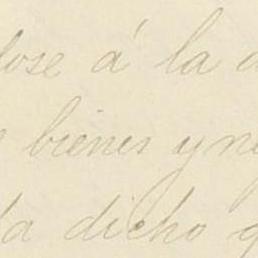 dose á la
bienes y
da dicho